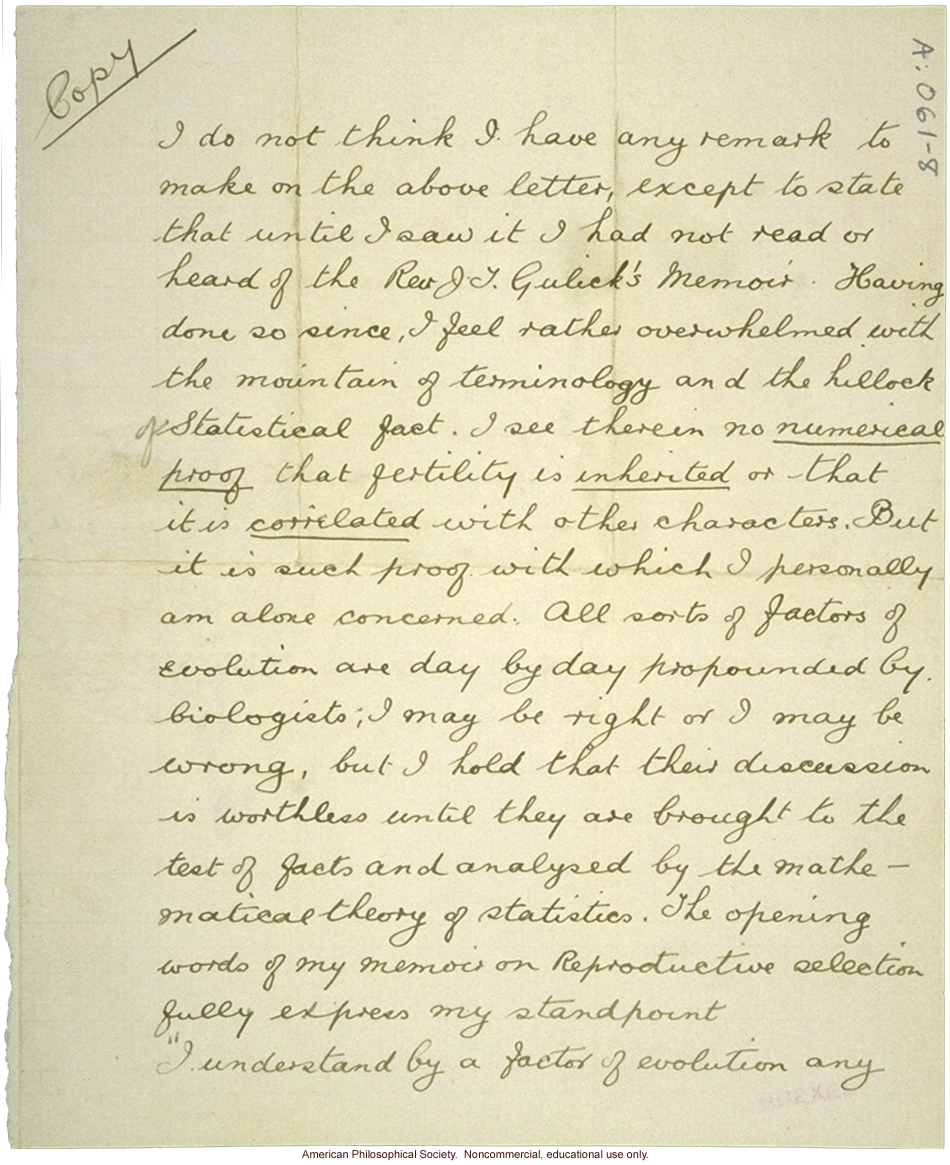 Copy
A:061-8
I do not think I have any remark to
make on the above letter, except to state
that until I saw it I had not read or
heard of the Rev J. T. Gulick's Memoir. Having
done so since, I feel rather overwhelmed with
the mountain of terminology and the hillock
of Statistical fact. I see therein no numerical
proof that fertility is inherited or that
it is correlated with other characters. But
it is such proof with which I personally
am alone concerned. All sorts of factors of
evolution are day by day propounded by
biologists; I may be right or I may be
wrong, but I hold that their discussion
is worthless until they are brought to the
test of facts and analysed by the mathe-
matical theory of statistics. The opening
words of my memoir on Reproductive selection
fully express my standpoint
"I understand by a factor of evolution any
American Philosophical Society. Noncommercial, educational use only.